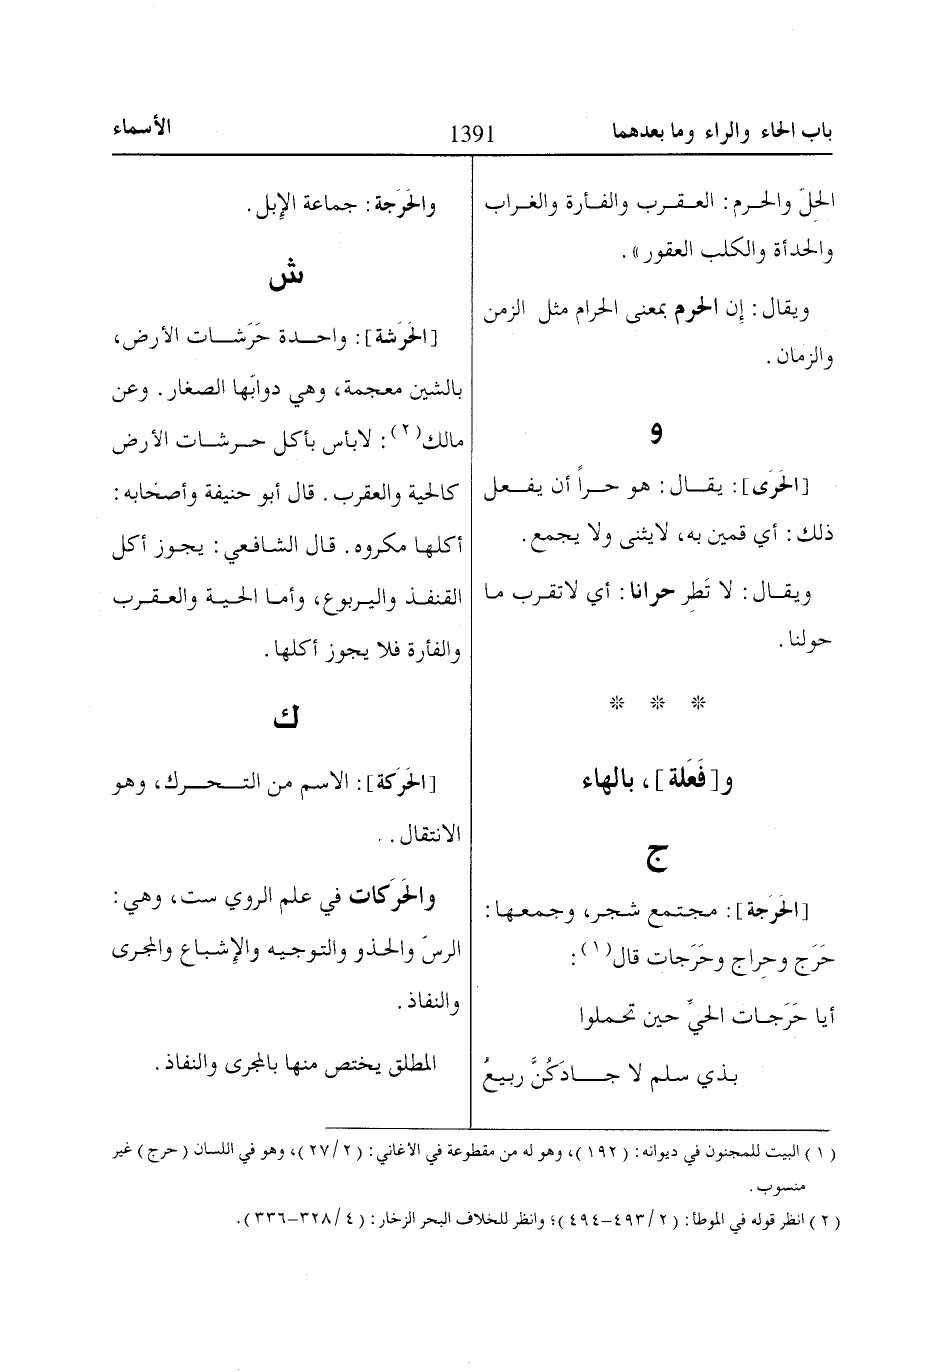 باب الحاء والراء وما بعدهما
1391
الأسماء
الحِلّ والحرم: العقرب والفأرة والغراب
والحدأة والكلب العقور».
ويقال: إن الحرم بمعنى الحرام مثل الزمن
والزمان.
و
[الحَرَى]: يقال: هو حراً أن يفعل
ذلك: أي قمين به، لايثنى ولا يجمع.
ويقال: لا تَطِر حرانا: أي لاتقرب ما
حولنا.
* * *
و[فَعَلة]، بالهاء
ج
[الحَرَجة]: مجتمع شجر، وجمعها:
حَرَج وحِراج وحَرَجات قال(١):
أيا حَرَجات الحيِّ حين تحملوا
بذي سلم لا جادَكُنَّ ربيعُ
والحَرَجة: جماعة الإبل.
ش
[الحَرَشة]: واحدة حَرَشات الأرض،
بالشين معجمة، وهي دوابّها الصغار. وعن
مالك(٢): لابأس بأكل حرشات الأرض
كالحية والعقرب. قال أبو حنيفة وأصحابه:
أكلها مكروه. قال الشافعي: يجوز أكل
القنفذ واليربوع، وأما الحية والعقرب
والفأرة فلا يجوز أكلها.
ك
[الحَرَكة]: الاسم من التحرك، وهو
الانتقال..
والحَرَكات في علم الروي ست، وهي:
الرسّ والحذو والتوجيه والإشباع والمجرى
والنفاذ.
المطلق يختص منها بالمجرى والنفاذ.
(١) البيت للمجنون في ديوانه: (١٩٢)، وهو له من مقطوعة في الأغاني: (٢/٢٧)، وهو في اللسان (حرج) غير
منسوب.
(٢) انظر قوله في الموطأ: (٢/٤٩٣-٤٩٤)؛ وانظر للخلاف البحر الزخار: (٤/٣٢٨-٣٣٦).